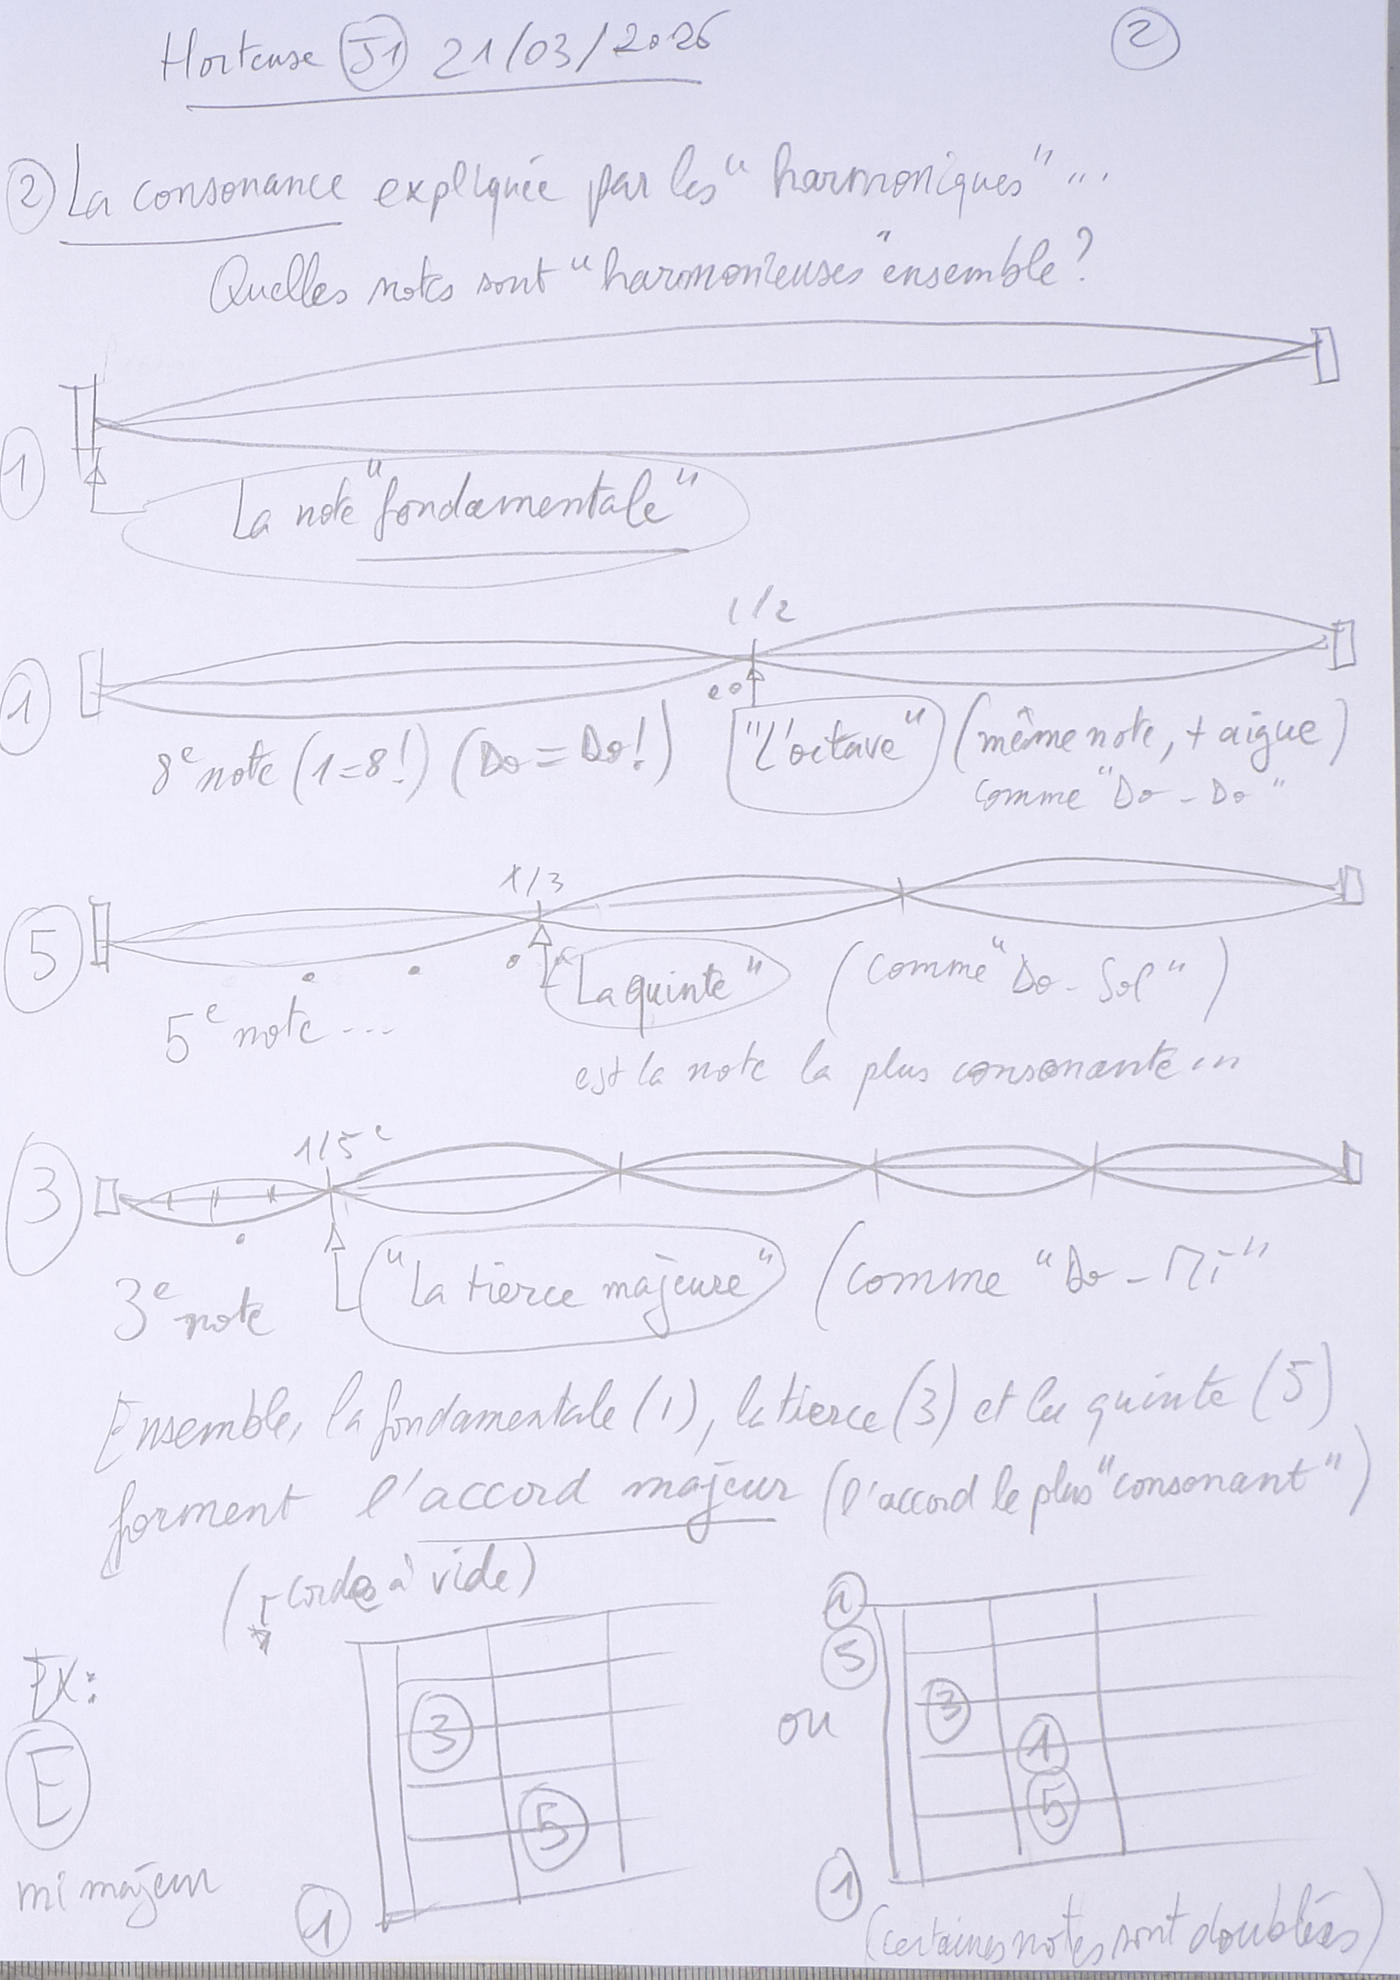 Hortense J1 21/03/2026
2
2 La consonance expliquée par les "harmoniques"...
Quelles notes sont "harmonieuses" ensemble?
1
La note "fondamentale"
1/2
1
8e note (1=8!) (Do = Do!) "L'octave" (même note, + aigue)
comme "Do - Do"
1/3
5
"La quinte" (comme "Do - Sol")
5e note ...
est la note la plus consonante...
1/5e
3
3e note "La tierce majeure" (comme "Do - Mi"
Ensemble, la fondamentale (1), la tierce (3) et la quinte (5)
forment l'accord majeur (l'accord le plus "consonant")
(cordes à vide)
Ex:
E
mi majeur
3
5
1
ou
1
5
3
1
5
1
(certaines notes sont doublées)